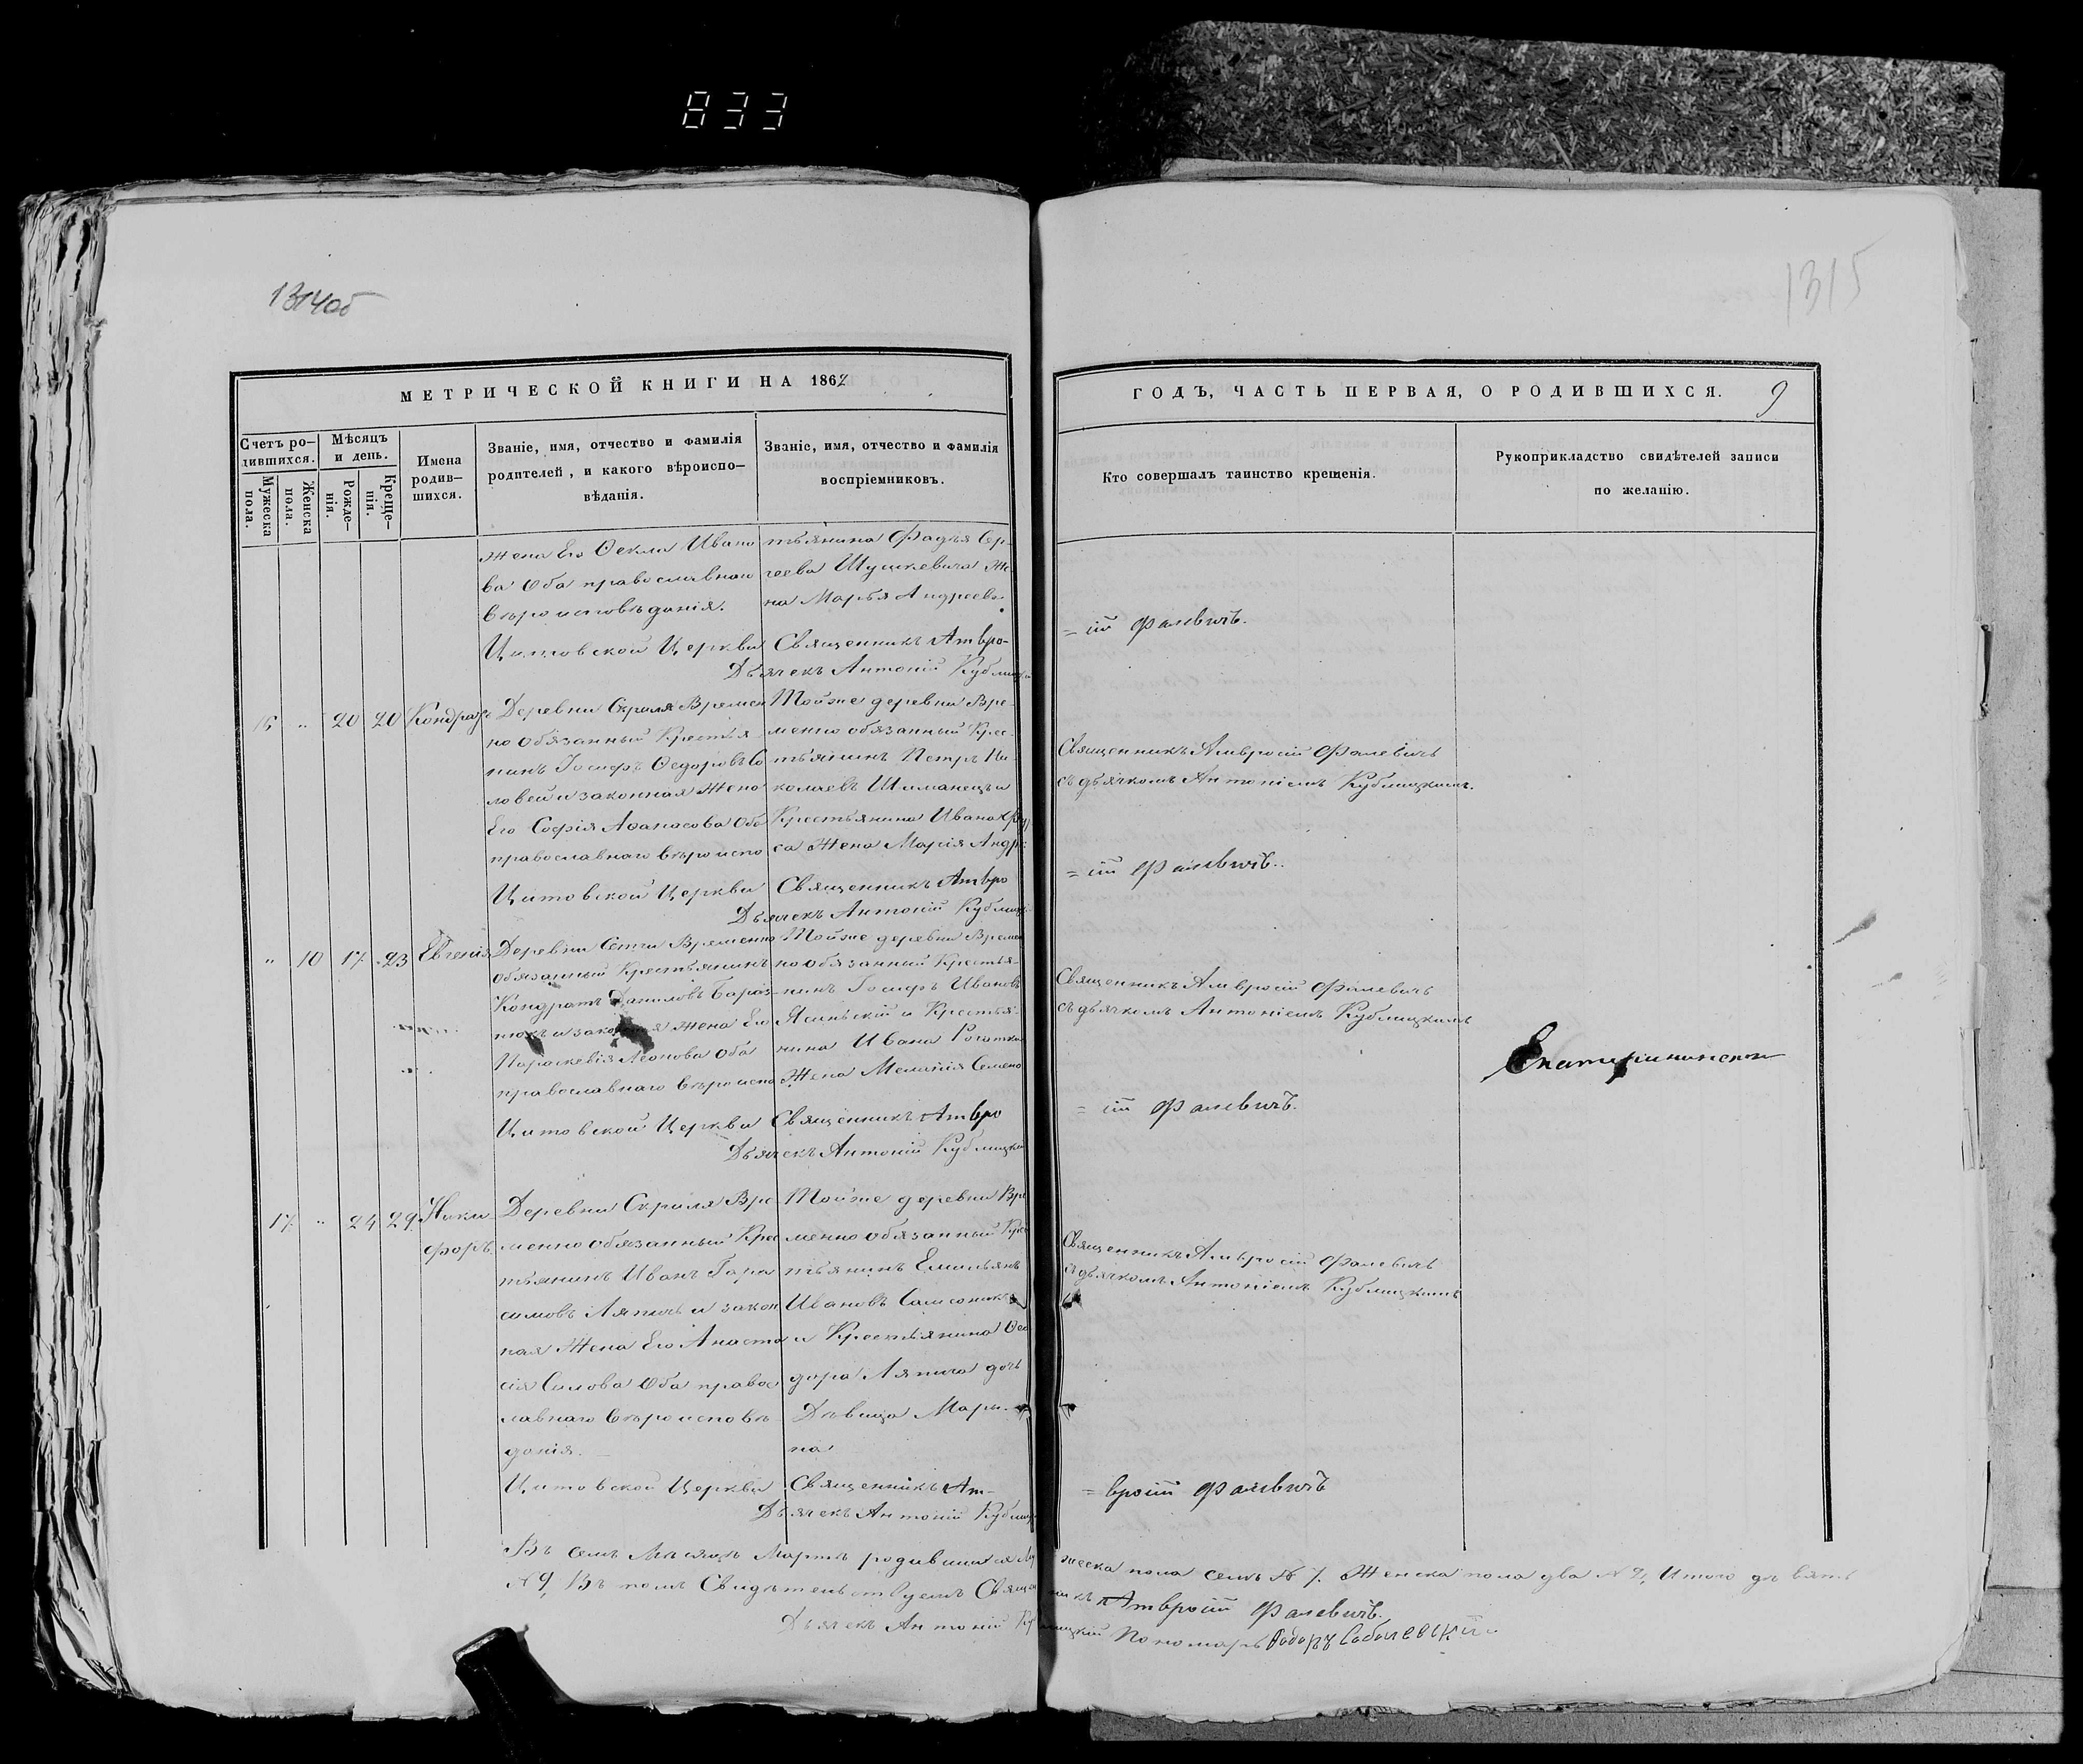 833
1314об
1315
МЕТРИЧЕСКОЙ КНИГИ НА 1862
ГОДЪ, ЧАСТЬ ПЕРВАЯ, О РОДИВШИХСЯ. 9
Счетъ ро-
дившихся.
Мужеска
пола.
Женска
пола.
Мѣсяцъ
и день.
Рожде-
нія.
Креще-
нія.
Имена
родив-
шихся.
Званіе, имя, отчество и фамилія
родителей, и какого вѣроиспо-
вѣданія.
Званіе, имя, отчество и фамилія
воспріемниковъ.
Кто совершалъ таинство крещенія.
Рукоприкладство свидѣтелей записи
по желанію.
Жена Его Ѳекла Ивано
ва Оба православнаго
вѣроисповѣданія.
тьянина Фадѣя Сер
геева Шушкевича Же
на Марья Андреева
Цитовской Церкви Священникъ Амвро-
=сій Фалевичъ.
Дьячекъ Антоній Кублицкій
16 " 20 20 Кондратъ
Деревни Скриля Времен
но обязанный Крестья
нинъ Іосифъ Ѳедоровъ Со
ловей и законная Жена
Его Софія Аѳанасова Оба
православнаго вѣроиспо
Тойже деревни Вре
менно обязанный Крес
тьянинъ Петръ Ни
колаевъ Шиманецъ и
Крестьянина Ивана
са Жена Марія Андре
Священникъ Амвросій Фалевичъ
съ дьячкомъ Антоніемъ Кублицкимъ.
Цитовской Церкви Священникъ Амвро
=сій Фалевичъ.
Дьячекъ Антоній Кублицкі
" 10 17 23 Евгенія
Деревни Сетчи Временно
обязанный Крестьянинъ
Кондратъ Даниловъ
и законная Жена Его
Параскевія Леонова Оба
православнаго вѣроиспо
Тойже деревни Времен
но обязанный Крестья-
нинъ Іосифъ Ивановъ
Ясинскій и Крестья
нина Ивана Рогатка
Жена Меланія Семено
Священникъ Амвросій Фалевичъ
съ дьячкомъ Антоніемъ Кублицкимъ
Цитовской Церкви Священникъ Амвро
=сій Фалевичъ.
Дьячекъ Антоній Кублицкій
17 " 24 29 Ники
форъ.
Деревни Скриля Вре
менно обязанный Крес
тьянинъ Иванъ Гара
симовъ Ляпичъ и закон
ная Жена Его Анаста
сія Силова Оба правос
лавнаго вѣроисповѣ
данія.
Тойже деревни Вре
менно обязанный Крес
тьянинъ Емильянъ
Ивановъ Самсоникъ
и Крестьянина Ѳео
дора Ляпича дочь
Дѣвица Мары-
на
Священникъ Амвросій Фалевичъ
съ дьячкомъ Антоніемъ Кублицкимъ
Цитовской Церкви Священникъ Ам-
=вросій Фалевичъ
Дьячекъ Антоній Кублиц
Въ семъ Мѣсяцѣ Мартѣ родившихся Мужеска пола семь № 7. Женска пола два № 2, Итого девять
№ 9, Въ томъ Свидѣтельствуемъ Священникъ Амвросій Фалевичъ.
Дьячекъ Антоній Кублицкій Пономарь Ѳодоръ Соболевскій